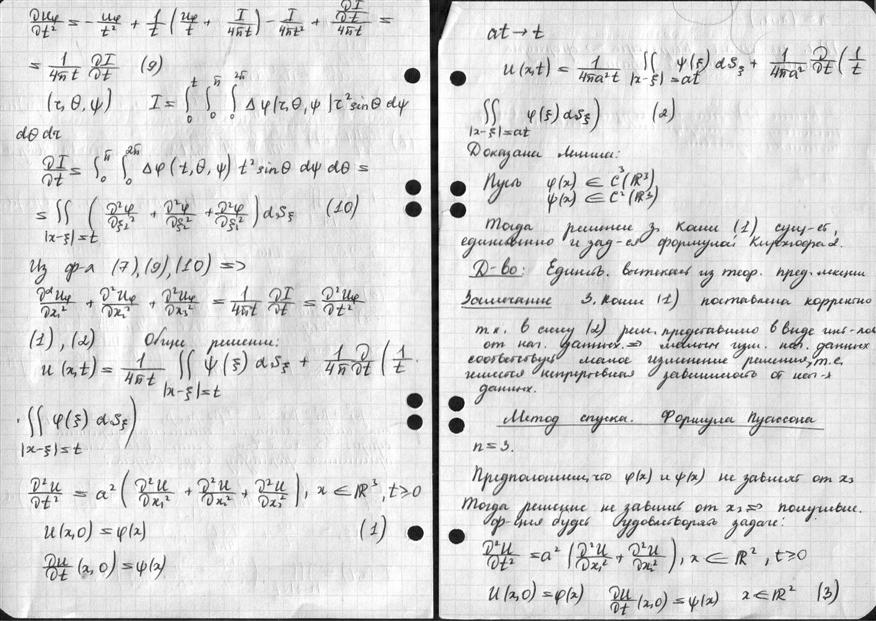 ∂²u_φ/∂t² = - u_φ/t² + 1/t (u_φ/t + I/4πt) - I/4πt² + (∂I/∂t)/4πt =
= 1/4πt ∂I/∂t (9)
(r, θ, ψ) I = ∫₀ᵗ ∫₀^π ∫₀^2π Δφ(r, θ, ψ) r² sinθ dψ
dθ dr
∂I/∂t = ∫₀^π ∫₀^2π Δφ(t, θ, ψ) t² sinθ dψ dθ =
= ∬_{|x-ξ|=t} (∂²φ/∂ξ₁² + ∂²φ/∂ξ₂² + ∂²φ/∂ξ₃²) dS_ξ (10)
Из ф-л (7), (9), (10) =>
∂²u_φ/∂x₁² + ∂²u_φ/∂x₂² + ∂²u_φ/∂x₃² = 1/4πt ∂I/∂t = ∂²u_φ/∂t²
(1), (2) Общее решение:
u(x,t) = 1/4πt ∬_{|x-ξ|=t} ψ(ξ) dS_ξ + 1/4π ∂/∂t (1/t ·
· ∬_{|x-ξ|=t} φ(ξ) dS_ξ)
∂²u/∂t² = a² (∂²u/∂x₁² + ∂²u/∂x₂² + ∂²u/∂x₃²), x ∈ ℝ³, t≥0
u(x,0) = φ(x) (1)
∂u/∂t (x,0) = ψ(x)
at → t
u(x,t) = 1/4πa²t ∬_{|x-ξ|=at} ψ(ξ) dS_ξ + 1/4πa² ∂/∂t (1/t
∬_{|x-ξ|=at} φ(ξ) dS_ξ) (2)
Доказана лемма:
Пусть φ(x) ∈ C³(ℝ³)
ψ(x) ∈ C²(ℝ³)
Тогда решение з. Коши (1) сущ-ет,
единственно и зад-ся формулой Кирхгофа 2.
Д-во: Единств. вытекает из теор. пред. лекции
Замечание З. Коши (1) поставлена корректно
т.к. в силу (2) реш. представимо в виде инт-лов
от нач. данных. => малым изм. нач. данных
соответствует малое изменение решения, т.е.
имеется непрерывная зависимость от нач-х
данных.
Метод спуска. Формула Пуассона
n = 3.
Предположим, что φ(x) и ψ(x) не зависят от x₃
Тогда решение не зависит от x₃ => получивш.
ф-ция будет удовлетворять задаче:
∂²u/∂t² = a² (∂²u/∂x₁² + ∂²u/∂x₂²), x ∈ ℝ², t≥0
u(x,0) = φ(x) ∂u/∂t (x,0) = ψ(x) x ∈ ℝ² (3)